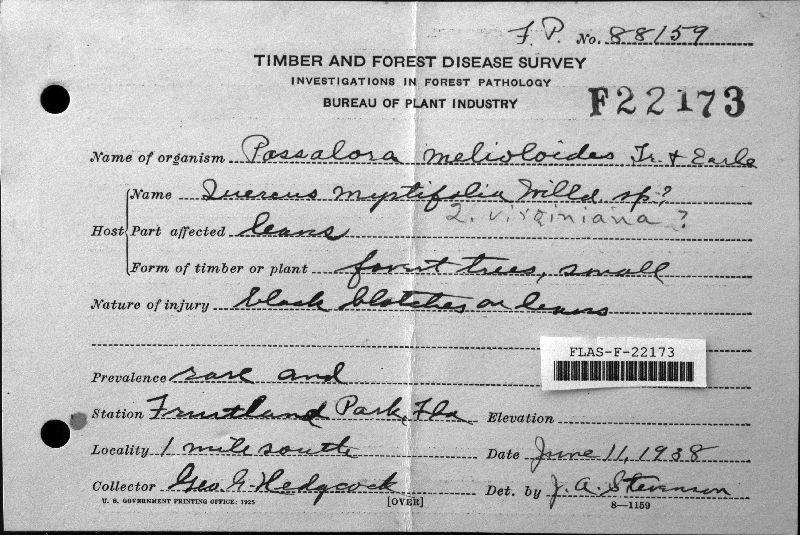 F. P. No. 88159
TIMBER AND FOREST DISEASE SURVEY
INVESTIGATIONS IN FOREST PATHOLOGY
BUREAU OF PLANT INDUSTRY
F22173
Name of organism Passalora melioloides Tr. & Earle
Host Name Quercus myrtifolia Willd sp?
Q. virginiana?
Part affected leaves
Form of timber or plant forest trees, small
Nature of injury black blotches on leaves
FLAS-F-22173
Prevalence rare and
Station Fruitland Park, Fla Elevation
Locality 1 mile south Date June 11, 1938
Collector Geo. G. Hedgcock Det. by J. A. Stevenson
U. S. GOVERNMENT PRINTING OFFICE: 1925 [OVER] 8—1159